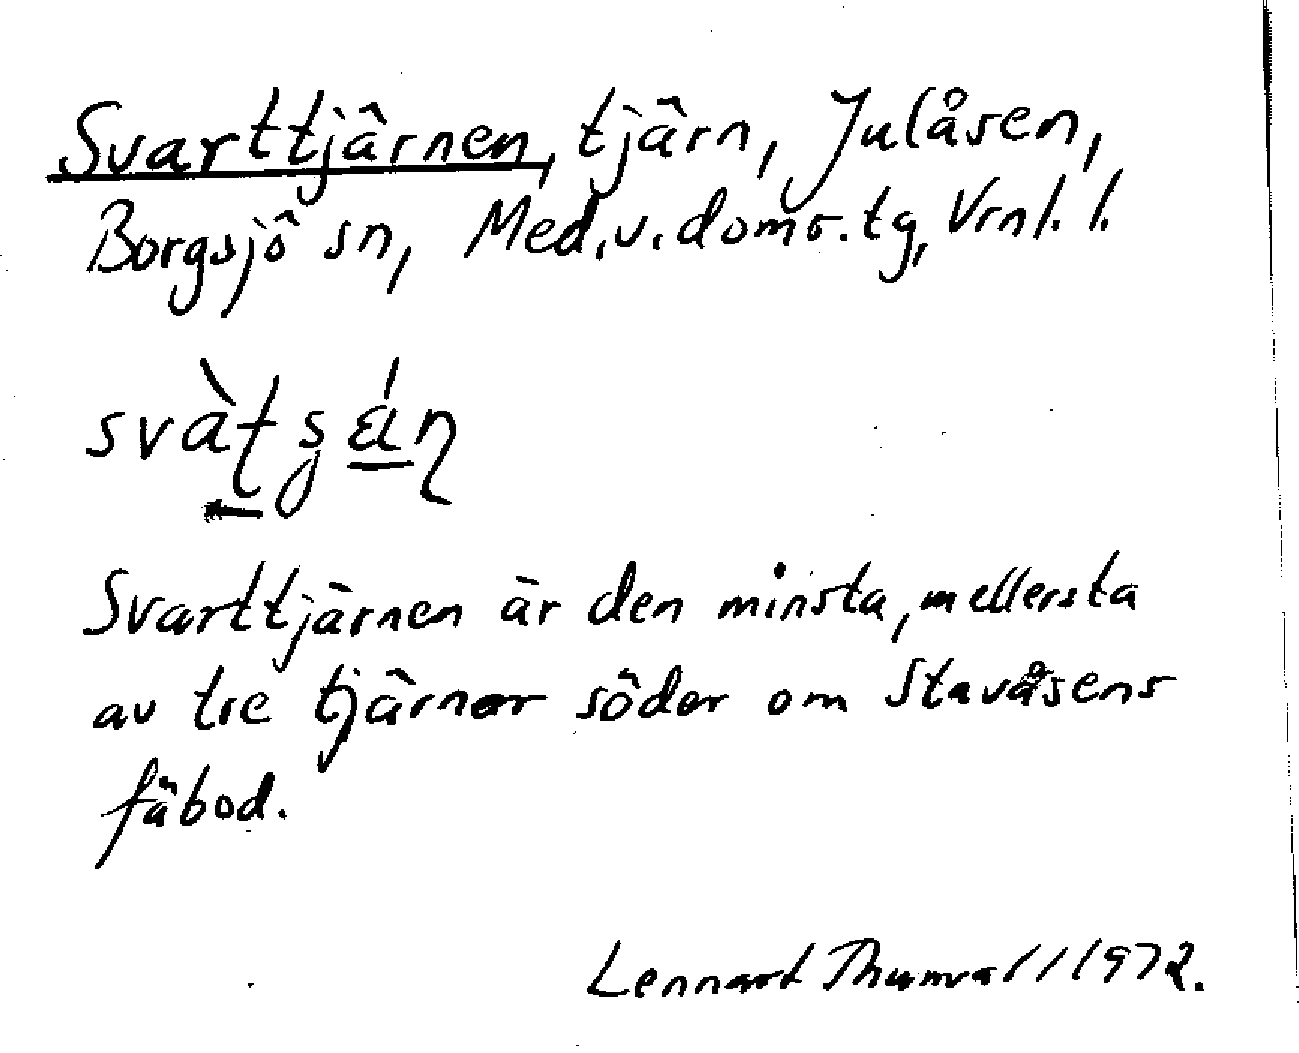 Svarttjärnen, tjärn, Julåsen,
Borgsjö sn, Med.v.doms.tg, Vrnl. l.
Svarttjärnen är den minsta, mellersta
av tre tjärnar söder om Stavåsens
fäbod.
Lennart Thunvall 1972.